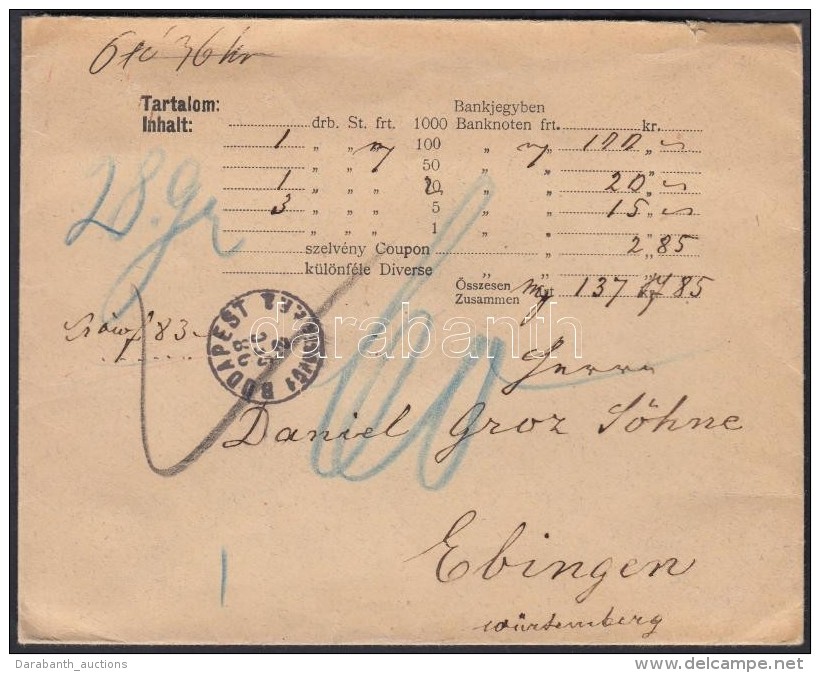 36 kr
Tartalom: Bankjegyben
Inhalt: drb. St. frt. 1000 Banknoten frt. kr.
1 „ „ „ 100 „ „ 100 „
„ „ „ 50 „ „ „
1 „ „ „ 20 „ „ 20 „
3 „ „ „ 5 „ „ 15 „
„ „ „ 1 „ „ „
szelvény Coupon „ 2 „ 85
különféle Diverse „ „ „
28. gr
Összesen
Zusammen frt 137 kr 85
BUDAPEST
darabanth
Herrn
Daniel Groz Söhne
Ebingen
Würtemberg
Darabanth_auctions
http://www.delcampe.net